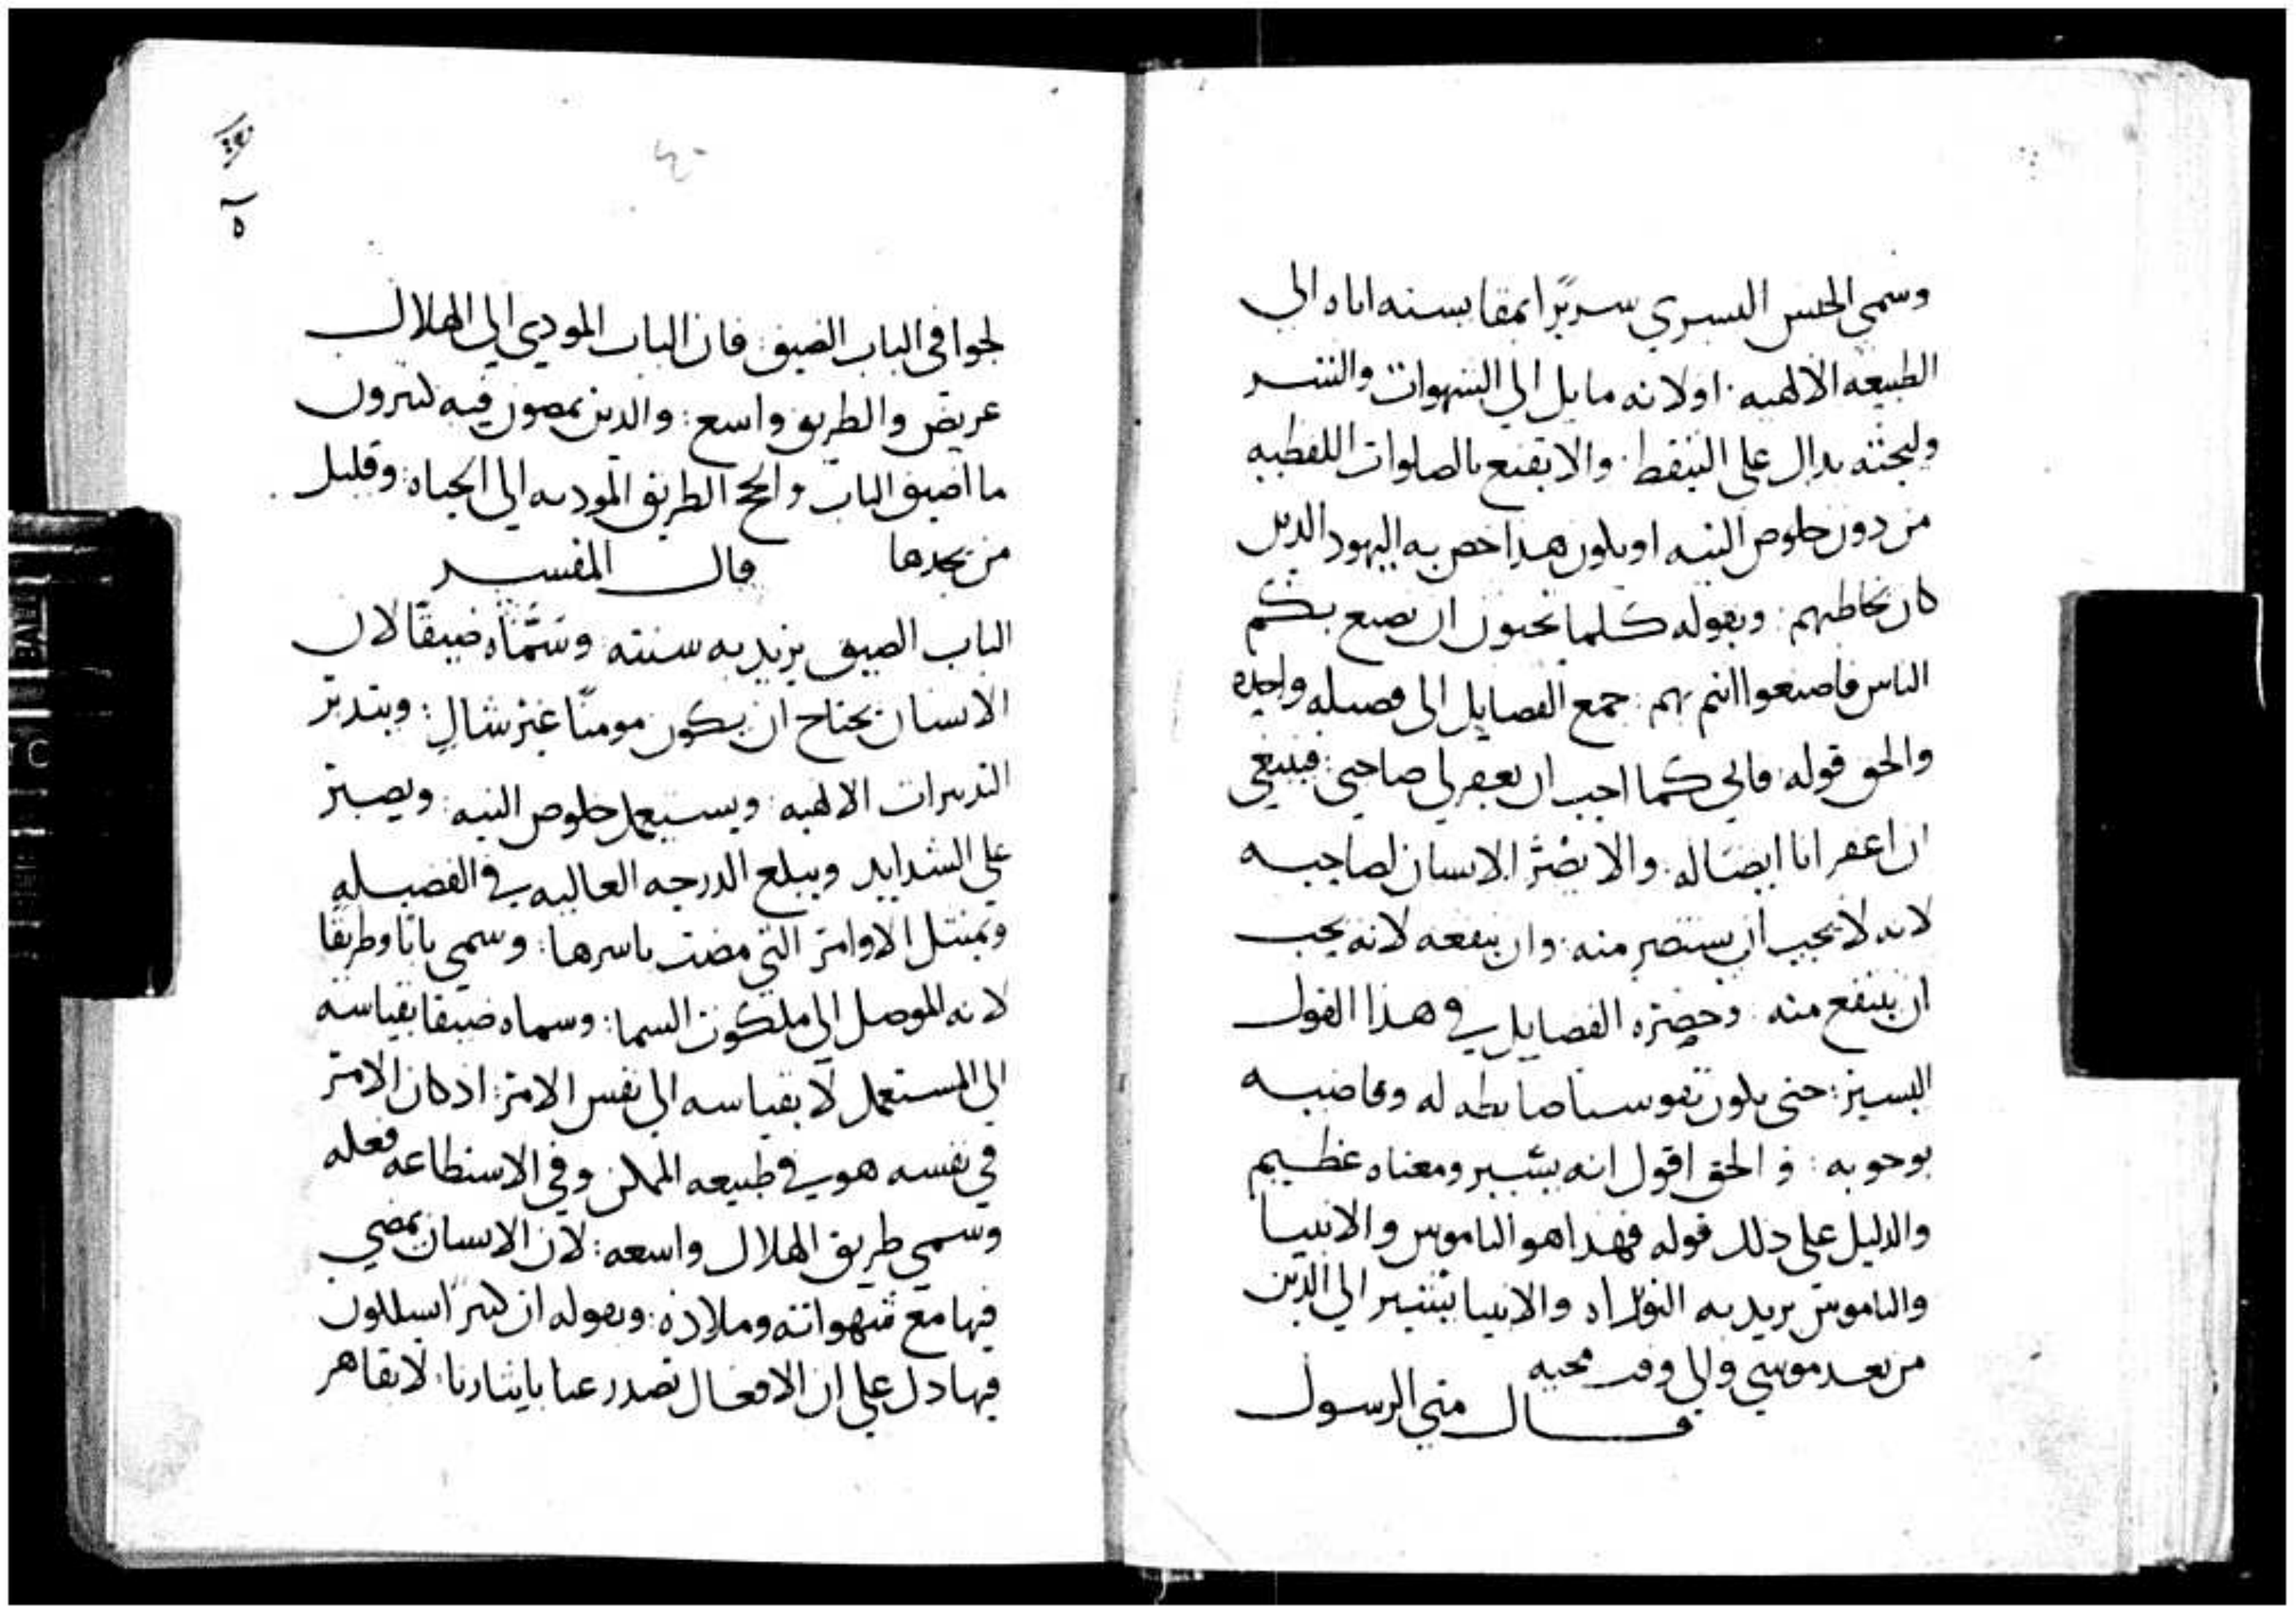 وسمي الجنس البشري شريرًا بمقايسته اياه الي
الطبيعه الالهيه. او لانه مايل الي الشهوات والشر
وليحثه بدال علي التيقظ. والا يقنع بالصلوات اللفظيه
من دون خلوص النيه او يكون هذا خص به اليهود الدين
كان يخاطبهم: وبقوله كلما تحبون ان يصنع بكم
الناس فاصنعوا انتم بهم: جمع الفضايل الي فضيله واحده
والحق قوله: فاني كما احب ان يغفر لي صاحبي: فينبغي
ان اغفر انا ايضا له. والا يضر الانسان لصاحبه
لانه لا يحب ان يستضر منه: وان ينفعه لانه يحب
ان ينتفع منه: وحصره الفضايل في هذا القول
اليسير: حتي يكون نفوسنا ضابطه له
بوجوبه: والحق اقول انه يسير ومعناه عظيم
والدليل علي دلك قوله فهذا هو الناموس والانبيا
والناموس يريد به التوراه والانبيا يشير الي الذين
من بعد موسي والي وقت مجيه
قال متي الرسول
٤٠
لجوا في الباب الضيق: فان الباب المودي الي الهلاك
عريض والطريق واسع: والدين يمضون فيه كثيرون
ما اضيق الباب والطريق الموديه الي الحياه: وقليل
من يجدها قال المفسر
الباب الضيق يريد به سنته وسماه ضيقًا لان
الانسان يحتاج ان يكون مومنًا غير شاكٍ: ويتدبر
التدبيرات الالهيه: ويستعمل خلوص النيه: ويصبر
علي الشدايد ويبلغ الدرجه العاليه في الفضيله
ويمتثل الاوامر التي مضت باسرها: وسمي بابًا وطريقًا
لانه الموصل الي ملكوت السما: وسماه ضيقا بقياسه
الي المستعمل لا بقياسه الي نفس الامر: اد كان الامر
في نفسه هو في طبيعه الممكن وفي الاستطاعه فعله
وسمي طريق الهلاك واسعه: لان الانسان يمضي
فيها مع شهواته وملاذه: وبقوله ان كثيرًا يسلكون
فيها دل علي ان الافعال تصدر عنا بايثارنا: لا بقاهر